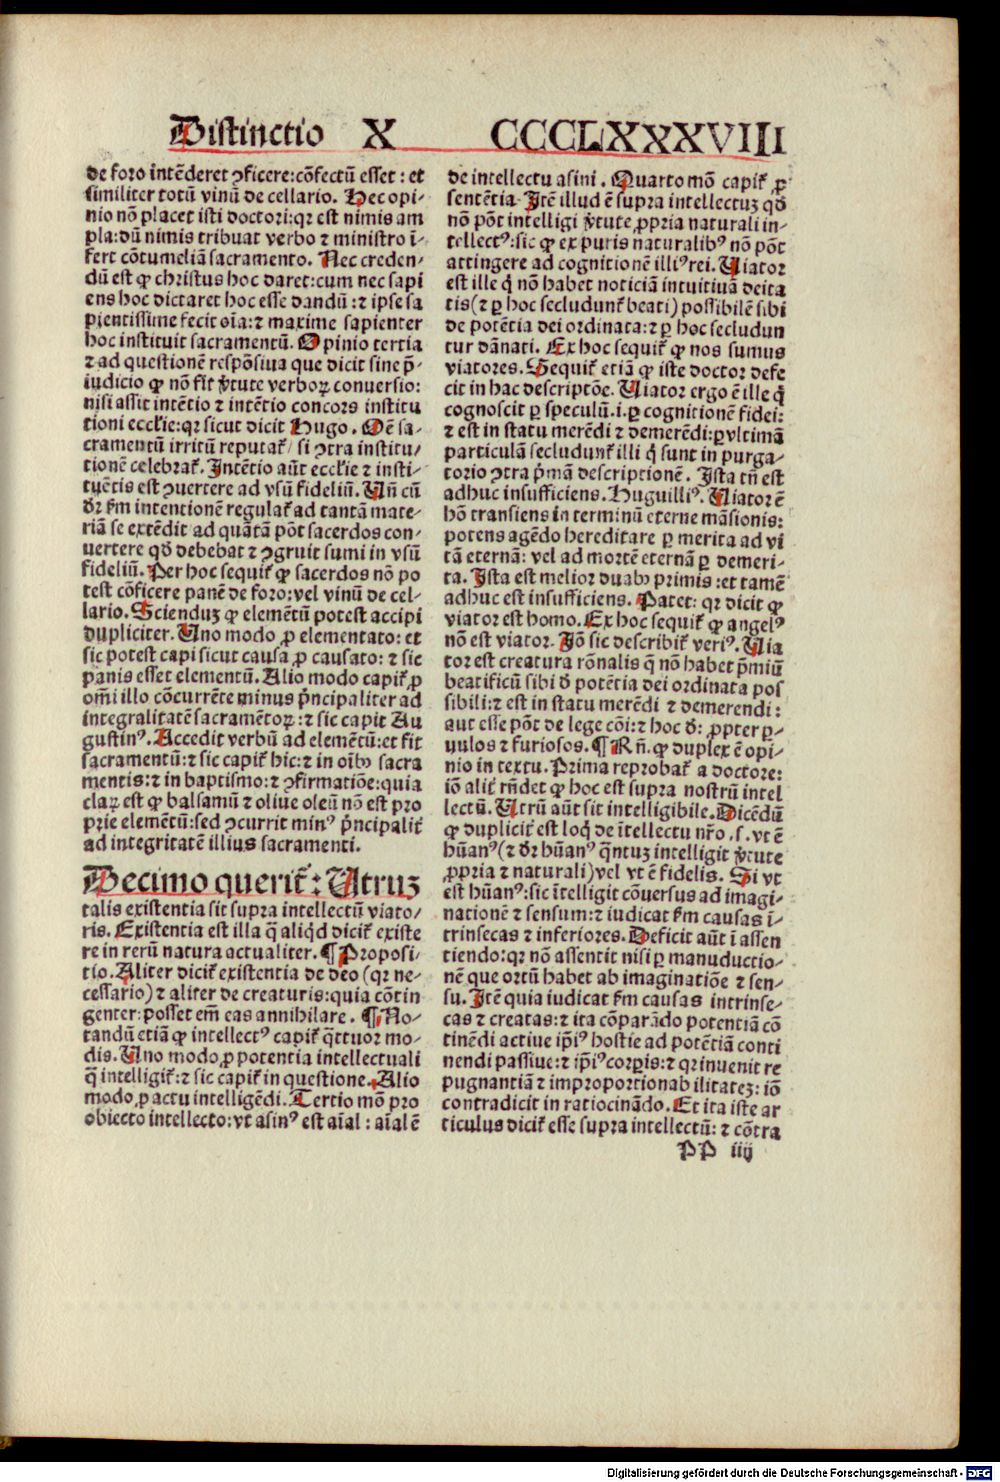 Distinctio X CCCCLXXXVIII
de foro intēderet ꝯficere: cōfectū esset : et
similiter totū vinū de cellario. Hec opi-
nio nō placet isti doctori: qꝛ est nimis am
pla: dū nimis tribuat verbo ⁊ ministro ī-
fert cōtumeliā sacramento. Nec creden-
dū est ꝙ christus hoc daret: cum nec sapi
ens hoc dictaret hoc esse dandū: ⁊ ipse sa
pientissime fecit oīa: ⁊ maxime sapienter
hoc instituit sacramentū. Opinio tertia
⁊ ad questionē respōsiua que dicit sine p̄-
iudicio ꝙ nō fit v̓tute verboꝝ conuersio:
nisi assit intētio ⁊ intētio concors institu
tioni eccl̓ie: qꝛ sicut dicit Hugo. Oē sa-
cramentū irritū reputat̓ / si ꝯtra institu-
tionē celebrat̓. Intētio aūt eccl̓ie ⁊ insti-
tuētis est ꝯuertere ad vsū fideliū. Un̄ cū
dꝛ̓ ẜm intentionē regulat̓ ad tantā mate-
riā se extēdit ad quātā pōt sacerdos con-
uertere qd̓ debebat ⁊ ꝯgruit sumi in vsū
fideliū. Per hoc sequit̓ ꝙ sacerdos nō po
test cōficere panē de foro: vel vinū de cel-
lario. Scienduꝫ ꝙ elemētū potest accipi
dupliciter. Uno modo ꝓ elementato: et
sic potest capi sicut causa ꝓ causato: ⁊ sic
panis esset elementū. Alio modo capit̓ ꝓ
om̄i illo cōcurrēte minus p̓ncipaliter ad
integralitatē sacramētoꝝ: ⁊ sic capit Au
gustinꝰ. Accedit verbū ad elemētū: et fit
sacramentū: ⁊ sic capit̓ hic: ⁊ in oībꝰ sacra
mentis: ⁊ in baptismo: ⁊ ꝯfirmatiōe: quia
claꝝ est ꝙ balsamū ⁊ oliue oleū nō est pro
prie elemētū: sed ꝯcurrit minꝰ p̓ncipalit̓
ad integritatē illius sacramenti.
Decimo querit̓: Utruꝫ
talis existentia sit supra intellectū viato-
ris. Existentia est illa q̄ aliqd̓ dicit̓ existe
re in rerū natura actualiter. ¶ Proposi-
tio. Aliter dicit̓ existentia de deo (qꝛ ne-
cessario) ⁊ aliter de creaturis: quia cōtin
genter: posset em̄ eas annihilare. ¶ No-
tandū etiā ꝙ intellectꝰ capit̓ q̓ttuor mo-
dis. Uno modo ꝓ potentia intellectuali
q̄ intelligit̓: ⁊ sic capit̓ in questione. Alio
modo ꝓ actu intelligēdi. Tertio mō pro
obiecto intellecto: vt asinꝰ est aīal : aīal ē
de intellectu asini . Quarto mō capit̓ ꝓ
sentētia. Itē illud ē supra intellectuꝫ qd̓
nō pōt intelligi v̓tute ꝓpria naturali in-
tellectꝰ: sic ꝙ ex puris naturalibꝰ nō pōt
attingere ad cognitionē illiꝰ rei. Uiator
est ille q̓ nō habet noticiā intuitiuā deita
tis (⁊ ꝑ hoc secludunt̓ beati) possibilē sibi
de potētia dei ordinata: ⁊ ꝑ hoc secludun
tur dānati. Ex hoc sequit̓ ꝙ nos sumus
viatores. Sequit̓ etiā ꝙ iste doctor defe
cit in hac descriptōe. Uiator ergo ē ille q̓
cognoscit ꝑ speculū .i. ꝑ cognitionē fidei:
⁊ est in statu merēdi ⁊ demerēdi: ꝑ vltimā
particulā secludunt̓ illi q̓ sunt in purga-
torio ꝯtra p̓mā descriptionē. Ista tn̄ est
adhuc insufficiens. Huguilliꝰ. Uiator ē
hō transiens in terminū eterne māsionis:
potens agēdo hereditare ꝑ merita ad vi
tā eternā: vel ad mortē eternā ꝑ demeri-
ta. Ista est melior duabꝰ primis: et tamē
adhuc est insufficiens. Patet: qꝛ dicit ꝙ
viator est homo. Ex hoc sequit̓ ꝙ angelꝰ
nō est viator. Iō sic describit̓ veriꝰ. Uia
tor est creatura rōnalis q̄ nō habet p̄miū
beatificū sibi d̓ potētia dei ordinata pos
sibili: ⁊ est in statu merēdi ⁊ demerendi:
aut esse pōt de lege cōi: ⁊ hoc d̓: ꝓpter ꝑ-
uulos ⁊ furiosos. ¶ Rn̄. ꝙ duplex ē opi-
nio in textu. Prima reprobat̓ a doctore:
iō alit̓ rn̄det ꝙ hoc est supra nostrū intel
lectū. Utrū aūt sit intelligibile. Dicēdū
ꝙ duplicit̓ est loq̓ de ītellectu nr̄o .s. vt ē
hūanꝰ (⁊ dꝛ̓ hūanꝰ q̄ntuꝫ intelligit v̓tute
ꝓpria ⁊ naturali) vel vt ē fidelis. Si vt
est hūanꝰ: sic ītelligit cōuersus ad imagi-
nationē ⁊ sensum: ⁊ iudicat ẜm causas ī-
trinsecas ⁊ inferiores. Deficit aūt ī assen
tiendo: qꝛ nō assentit nisi ꝑ manuductio-
nē que ortū habet ab imaginatiōe ⁊ sen-
su. Itē quia iudicat ẜm causas intrinse-
cas ⁊ creatas: ⁊ ita cōparādo potentiā cō
tinēdi actiue ip̄iꝰ hostie ad potētiā conti
nendi passiue: ⁊ ip̄iꝰ corꝑis: ⁊ qꝛ inuenit re
pugnantiā ⁊ improportionabilitateꝫ: iō
contradicit in ratiocinādo. Et ita iste ar
ticulus dicit̓ esse supra intellectū: ⁊ cōtra
PP iiij
Digitalisierung gefördert durch die Deutsche Forschungsgemeinschaft - DFG